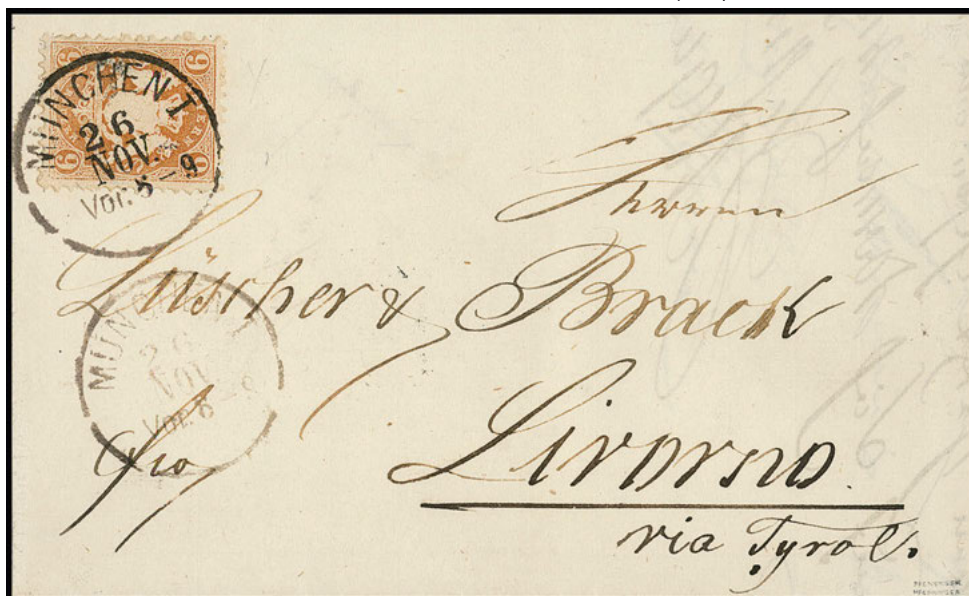 9 9
9 9
MÜNCHEN I
26
NOV.
Vor. 8 - 9
Herren
Lüscher & Brack
MÜNCHEN I
26
NOV
Vor. 8 - 9
fco
Livorno.
via Tyrol.